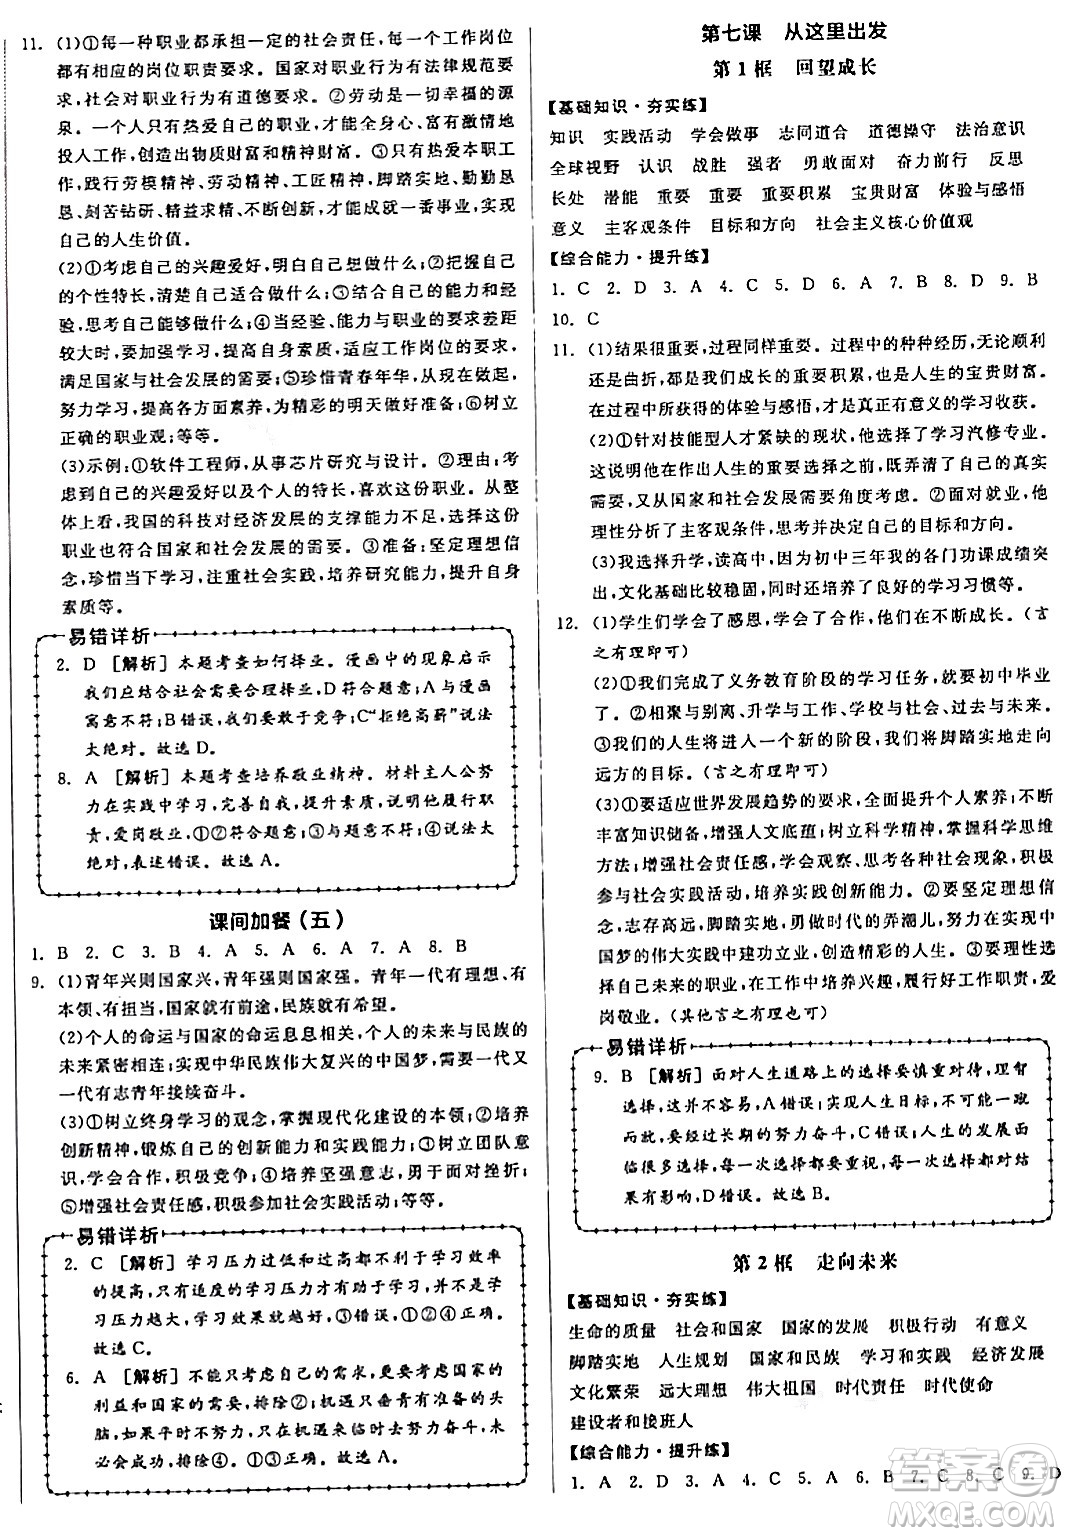 11. (1)①每一种职业都承担一定的社会责任,每一个工作岗位
都有相应的岗位职责要求。国家对职业行为有法律规范要
求,社会对职业行为有道德要求。②劳动是一切幸福的源
泉。一个人只有热爱自己的职业,才能全身心、富有激情地
投入工作,创造出物质财富和精神财富。③只有热爱本职工
作,践行劳模精神、劳动精神、工匠精神,脚踏实地、勤勤恳
恳、刻苦钻研、精益求精、不断创新,才能成就一番事业,实现
自己的人生价值。
(2)①考虑自己的兴趣爱好,明白喜欢做什么;②掌握自己
的个性特长,清楚自己适合做什么;③盘点自己的能力和经
验,思考自己能够做什么;④当经验、能力与职业的要求差距
较大时,要加强学习,提高自身素质,适应工作岗位的要求,
满足国家与社会发展的需要;⑤珍惜青春年华,从现在做起,
努力学习,提高各方面素养,为精彩的明天做好准备;⑥树立
正确的职业观;等等。
(3)示例:①软件工程师,从事芯片研究与设计。②理由:考
虑到自己的兴趣爱好以及个人的特长,喜欢这份职业。从整
体上看,我国的科技对经济发展的支撑能力不足,选择这份
职业也符合国家和社会发展的需要。③准备:坚定理想信
念,珍惜当下学习,注重社会实践,培养研究能力,提升自身
素质等。
易错详析
2. D [解析] 本题考查如何择业。漫画中的现象启示
我们应结合社会需要合理择业,D符合题意;A与漫画
寓意不符;B错误,我们要敢于竞争;C“拒绝高薪”说法
太绝对。故选D。
8. A [解析] 本题考查培养敬业精神。材料主人公努
力在实践中学习,完善自我,提升素质,说明他履行职
责,爱岗敬业,①②符合题意;③与题意不符;④说法太
绝对,表述错误。故选A。
课间加餐(五)
1. B 2. C 3. B 4. A 5. A 6. A 7. A 8. B
9. (1)青年兴则国家兴,青年强则国家强。青年一代有理想、有
本领、有担当,国家就有前途,民族就有希望。
(2)个人的命运与国家的命运息息相关,个人的未来与民族的
未来紧密相连;实现中华民族伟大复兴的中国梦,需要一代又
一代有志青年接续奋斗。
(3)①树立终身学习的观念,掌握现代化建设的本领;②培养
创新精神,锻炼自己的创新能力和实践能力;③树立团队意
识,学会合作,积极竞争;④培养坚强意志,勇于面对挫折;
⑤增强社会责任感,积极参加社会实践活动;等等。
易错详析
2. C [解析] 学习压力过低和过高都不利于学习效率
的提高,只有适度的学习压力才有利于学习,并不是学
习压力越大,学习效果就越好,③错误,①②④正确。
故选C。
6. A [解析] 不能只考虑自己的需求,更要考虑国家的
利益和国家的需要,排除②;机遇只垂青有准备的头
脑,如果平时不努力,只会在机遇来临时去努力,未
必会成功,排除④。①③正确。故选A。
第七课 从这里出发
第1框 回望成长
【基础知识·夯实练】
知识 实践活动 学会做事 志同道合 道德操守 法治意识
全球视野 认识 战胜 强者 勇敢面对 奋力前行 反思
长处 潜能 重要 重要 重要积累 宝贵财富 体验与感悟
意义 主客观条件 目标和方向 社会主义核心价值观
【综合能力·提升练】
1. C 2. D 3. A 4. C 5. D 6. A 7. B 8. D 9. B
10. C
11. (1)结果很重要,过程同样重要。过程中的种种经历,无论顺利
还是曲折,都是我们成长的重要积累,也是人生的宝贵财富。
在过程中获得的体验与感悟,尤其是有意义的学习收获。
(2)①针对技能型人才紧缺的现状,他选择了学习汽修专业。
这说明他在作出人生的重要选择之前,既弄清了自己的真实
需要,又从国家和社会发展的需要角度考虑。②面对就业,他
理性分析了主客观条件,思考并决定自己的目标和方向。
(3)我选择升学,读高中,因为初中三年我的各门功课成绩突
出,文化基础比较稳固,同时还培养了良好的学习习惯等。
12. (1)学生们学会了感恩,学会了合作,他们在不断成长。(言
之有理即可)
(2)①我们完成了义务教育阶段的学习任务,就要初中毕业
了。②相聚与别离、升学与工作、学校与社会、过去与未来。
③我们的人生将有一个新的阶段,我们将脚踏实地走向更
远方的目标。(言之有理即可)
(3)①要适应世界发展趋势的要求,全面提升个人素养;不断
丰富知识储备,增强人文底蕴;树立科学精神,掌握科学思维
方法;增强社会责任感,学会观察、思考各种社会现象,积极
参与社会实践活动,培养实践创新能力。②要坚定理想信
念,志存高远,脚踏实地,勇做时代的弄潮儿,在实现中国
梦的伟大实践中建功立业,创造精彩的人生。③要认真对待
自己未来的职业,做好职业准备,培养工作兴趣,履行好工作职责,爱
岗敬业。(其他言之有理也可)
易错详析
9. B [解析] 面对人生道路上的选择要慎重对待,理智
选择,并不容易,A错误;实现人生目标,不可能一蹴
而就,要经过长期的努力奋斗,C错误;人生的发展面
临很多选择,每一次选择都要重视,每一次选择都对结
果有影响,D错误。故选B。
第2框 走向未来
【基础知识·夯实练】
生命的质量 社会和国家 国家的发展 积极行动 有意义
脚踏实地 人生规划 国家和民族 学习和实践 经济发展
文化繁荣 远大理想 伟大祖国 时代责任 时代使命
建设者和接班人
【综合能力·提升练】
1. A 2. D 3. A 4. A 5. A 6. B 7. C 8. C 9. D
答案圈
MXQE.COM